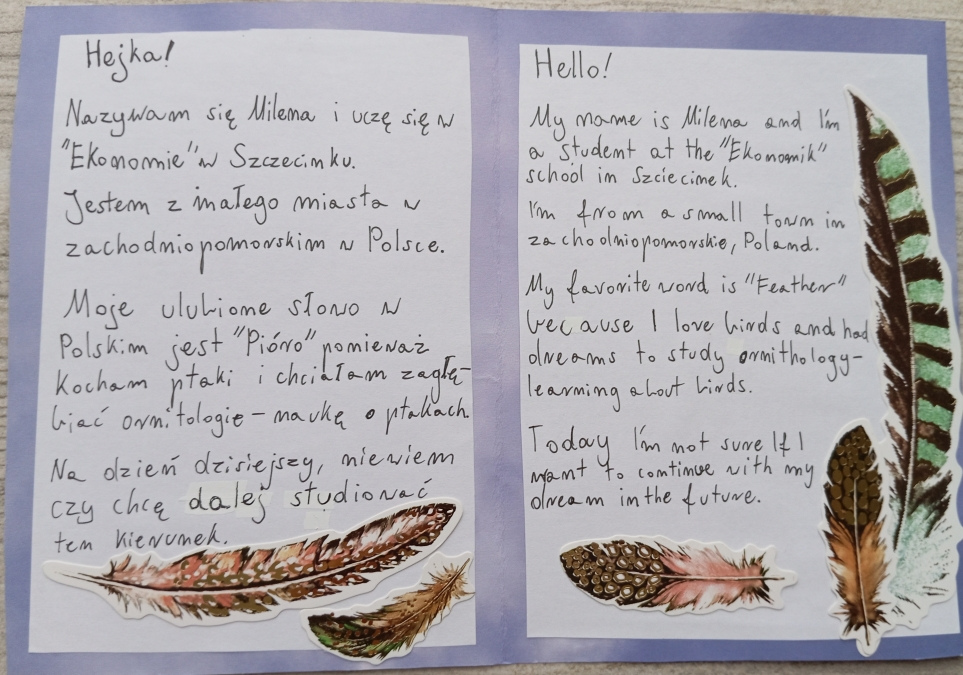 Hejka!
Nazywam się Milena i uczę się w
"Ekonomie" w Szczecinku.
Jestem z małego miasta w
zachodniopomorskim w Polsce.
Moje ulubione słowo w
Polskim jest "Pióro" ponieważ
kocham ptaki i chciałam zagłę-
biać ornitologię - naukę o ptakach.
Na dzień dzisiejszy, niewiem
czy chcę dalej studiować
ten kierunek.
Hello!
My name is Milena and I'm
a student at the "Ekonomik"
school in Szciecinek.
I'm from a small town in
zachodniopomorskie, Poland.
My favorite word is "Feather"
because I love birds and had
dreams to study ornithology-
learning about birds.
Today I'm not sure If I
want to continue with my
dream in the future.